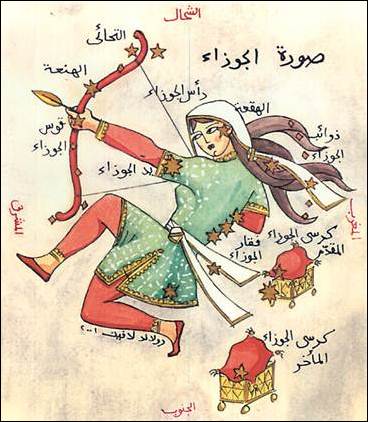 الشمال
التحائى
صورة الجوزاء
الهنعة
رأس الجوزاء
الهقعة
قوس
الجوزاء
ذوائب
الجوزاء
الجوزاء
المشرق
المغرب
كرسى الجوزاء
المقدّم
فقار
الجوزاء
كرسى الجوزاء
المأخر
الجنوب